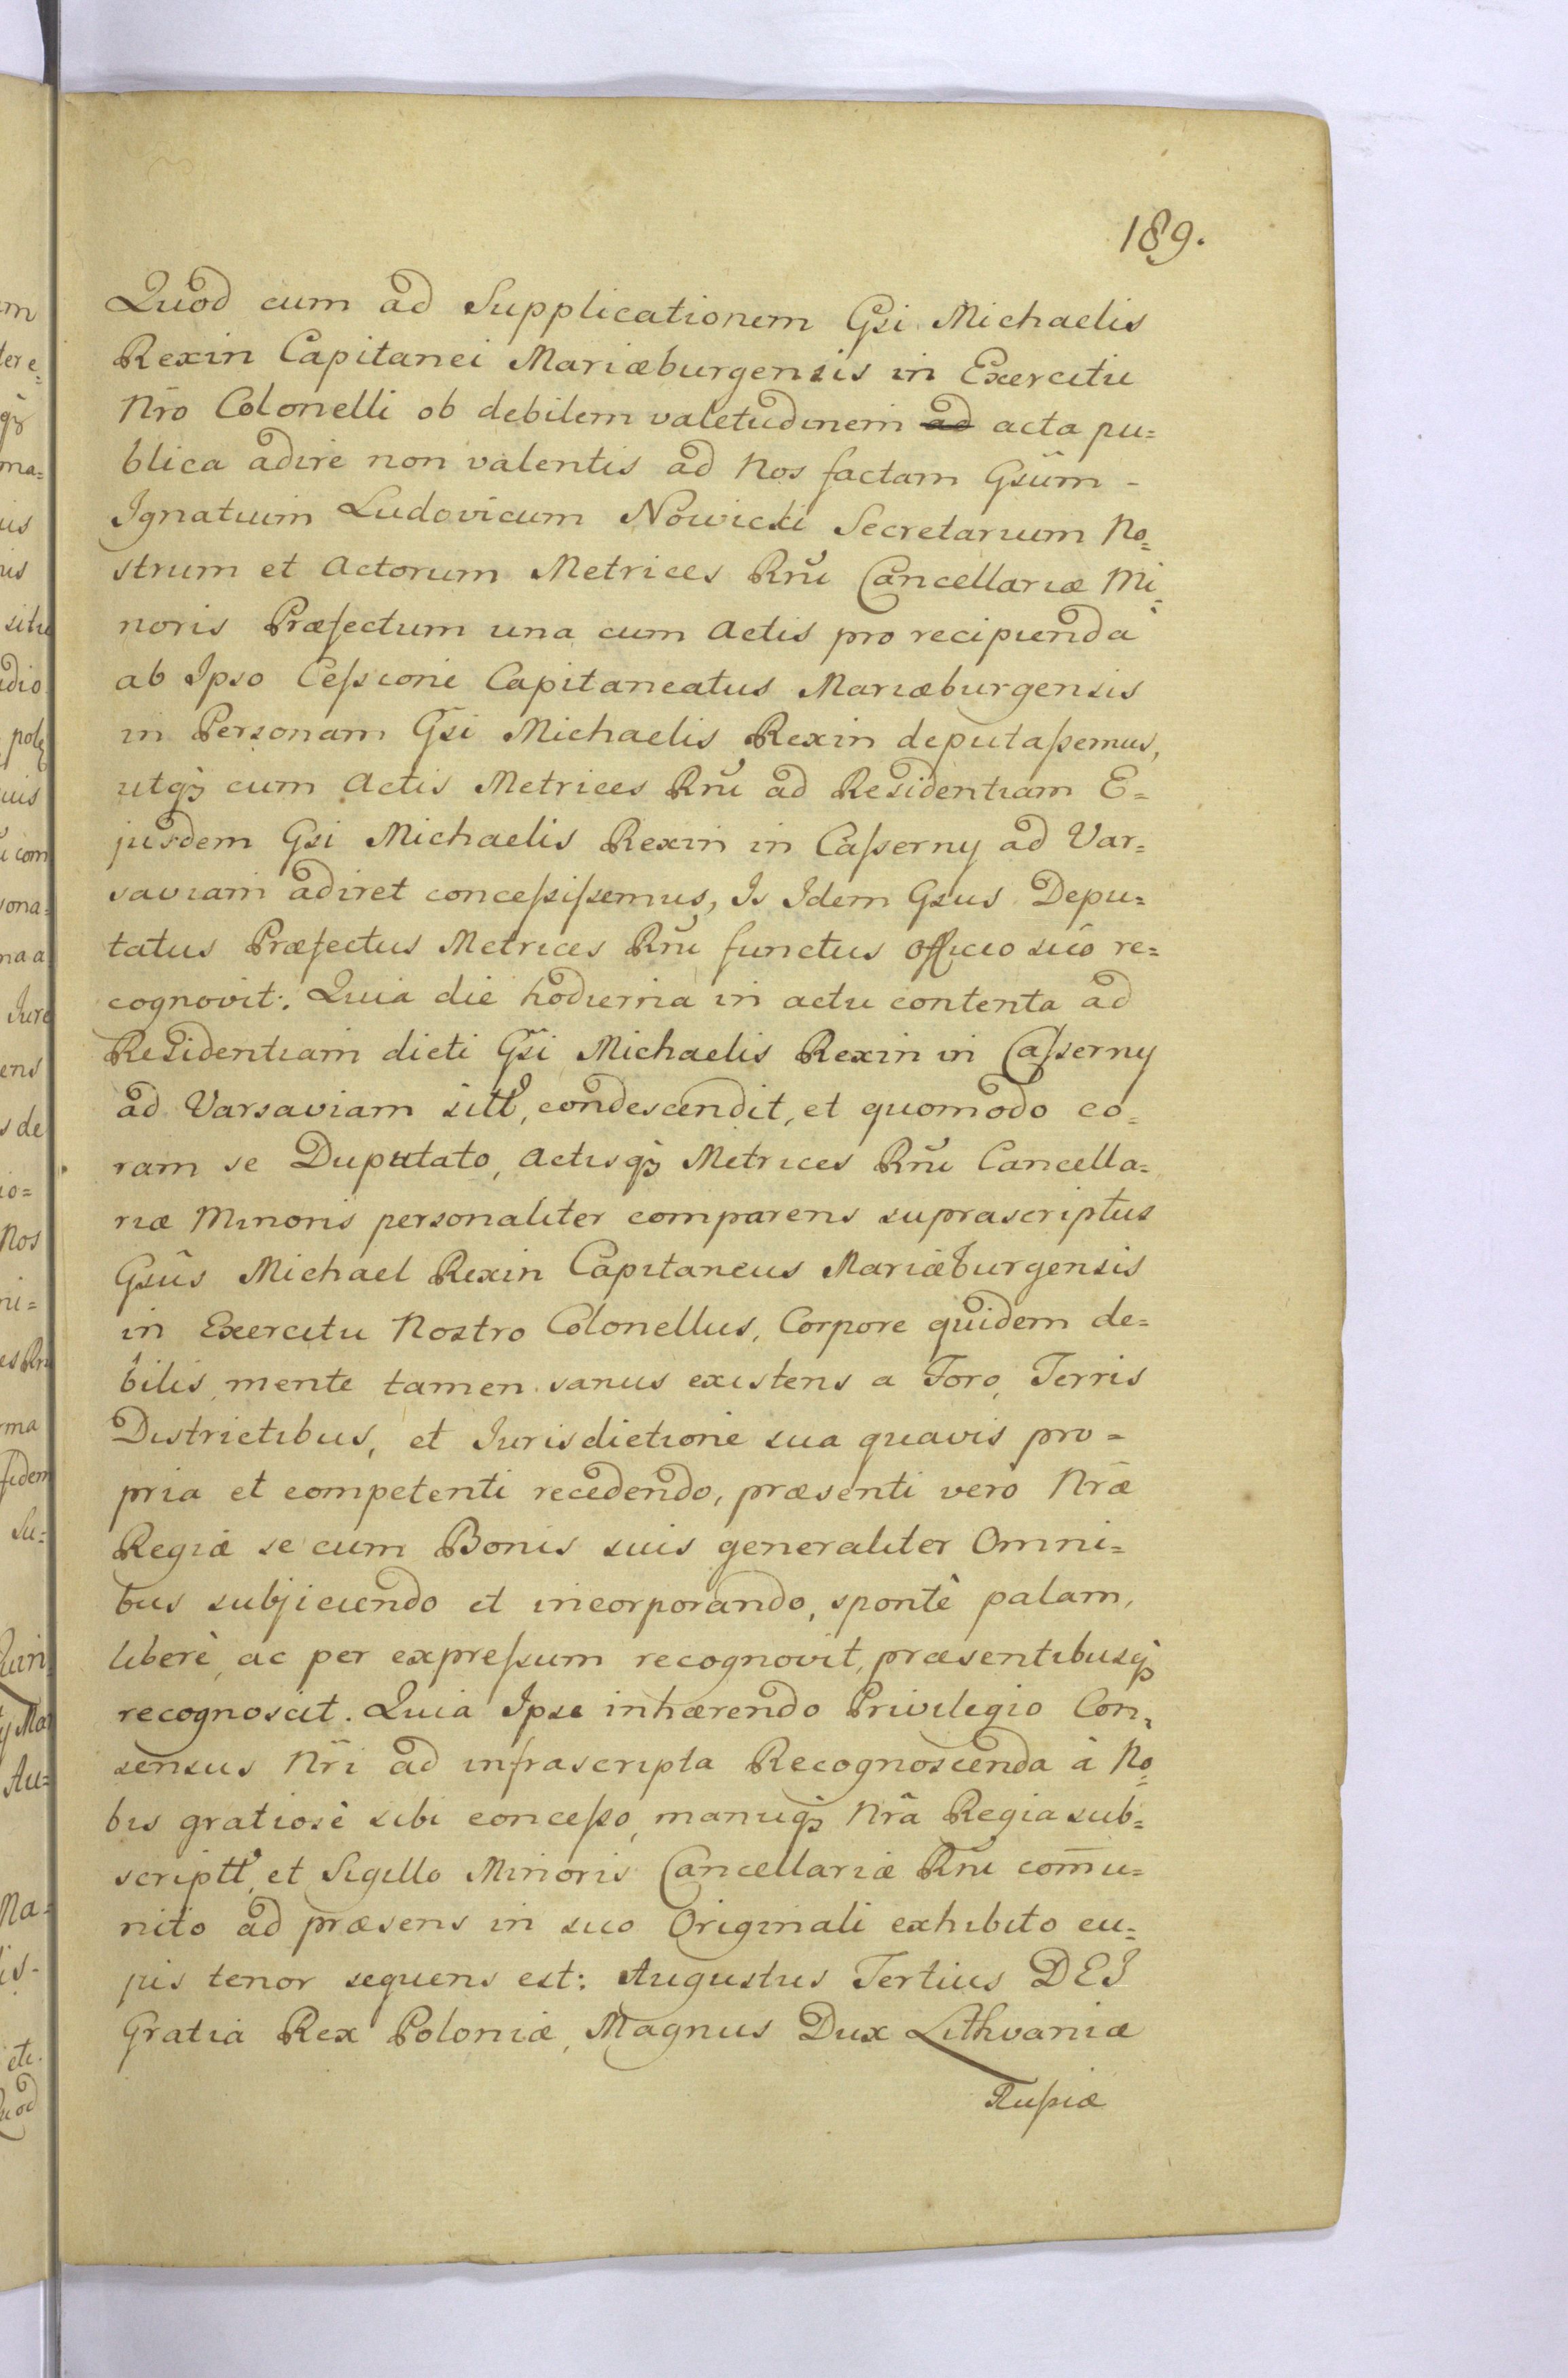 189.
Quod cum ad Supplicationem Gsi Michaelis
Rexin Capitanei Mariæburgensis in Exercitu
Nr̃o Colonelli ob debilem valetudinem ad acta pu=
blica adire non valentis ad Nos factam Gsum -
Ignatium Ludovicum Nowicki Secretarium No=
strum et Actorum Metrices Rñi Cancellariæ Mi=
noris Præfectum una cum Actis pro recipienda
ab Ipso Ceſsione Capitaneatus Mariæburgensis
in Personam Gsi Michaelis Rexin deputaſsemus,
utqꝫ cum Actis Metrices Rñi ad Residentiam E=
jusdem Gsi Michaelis Rexin in Caſserny ad Var=
saviam adiret conceſsiſsemus, Is Idem Gsus Depu=
tatus Præfectus Metrices Rñi functus officio suo re=
cognovit: Quia die hodierna in actu contenta ad
Residentiam dicti Gsi Michaelis Rexin in Caſserny
ad Varsaviam sitt, condescendit, et quomodo co=
ram se Duputato, Actisqꝫ Metrices Rñi Cancella=
riæ Minoris personaliter comparens suprascriptus
Gsus Michael Rexin Capitaneus Mariæburgensis
in Exercitu Nostro Colonellus, Corpore quidem de=
bilis, mente tamen sanus existens a Foro, Terris
Districtibus, et Iurisdictione sua quavis pro=
pria et competenti recedendo, præsenti vero Nræ
Regiæ se cum Bonis suis generaliter Omni=
bus subjiciendo et incorporando, spontè palam,
liberè, ac per expreſsum recognovit, præsentibusqꝫ
recognoscit. Quia Ipse inhærendo Privilegio Con=
sensus Nri ad infrascripta Recognoscenda à No=
bis gratiosè sibi conceſso, manuqꝫ Nrâ Regia sub=
scriptt, et Sigillo Minoris Cancellariæ Rñi com̃u=
nito ad præsens in suo Originali exhibito cu=
jus tenor sequens est: Augustus Tertius DEI
Gratia Rex Poloniæ, Magnus Dux Lithvaniæ
Ruſsiæ